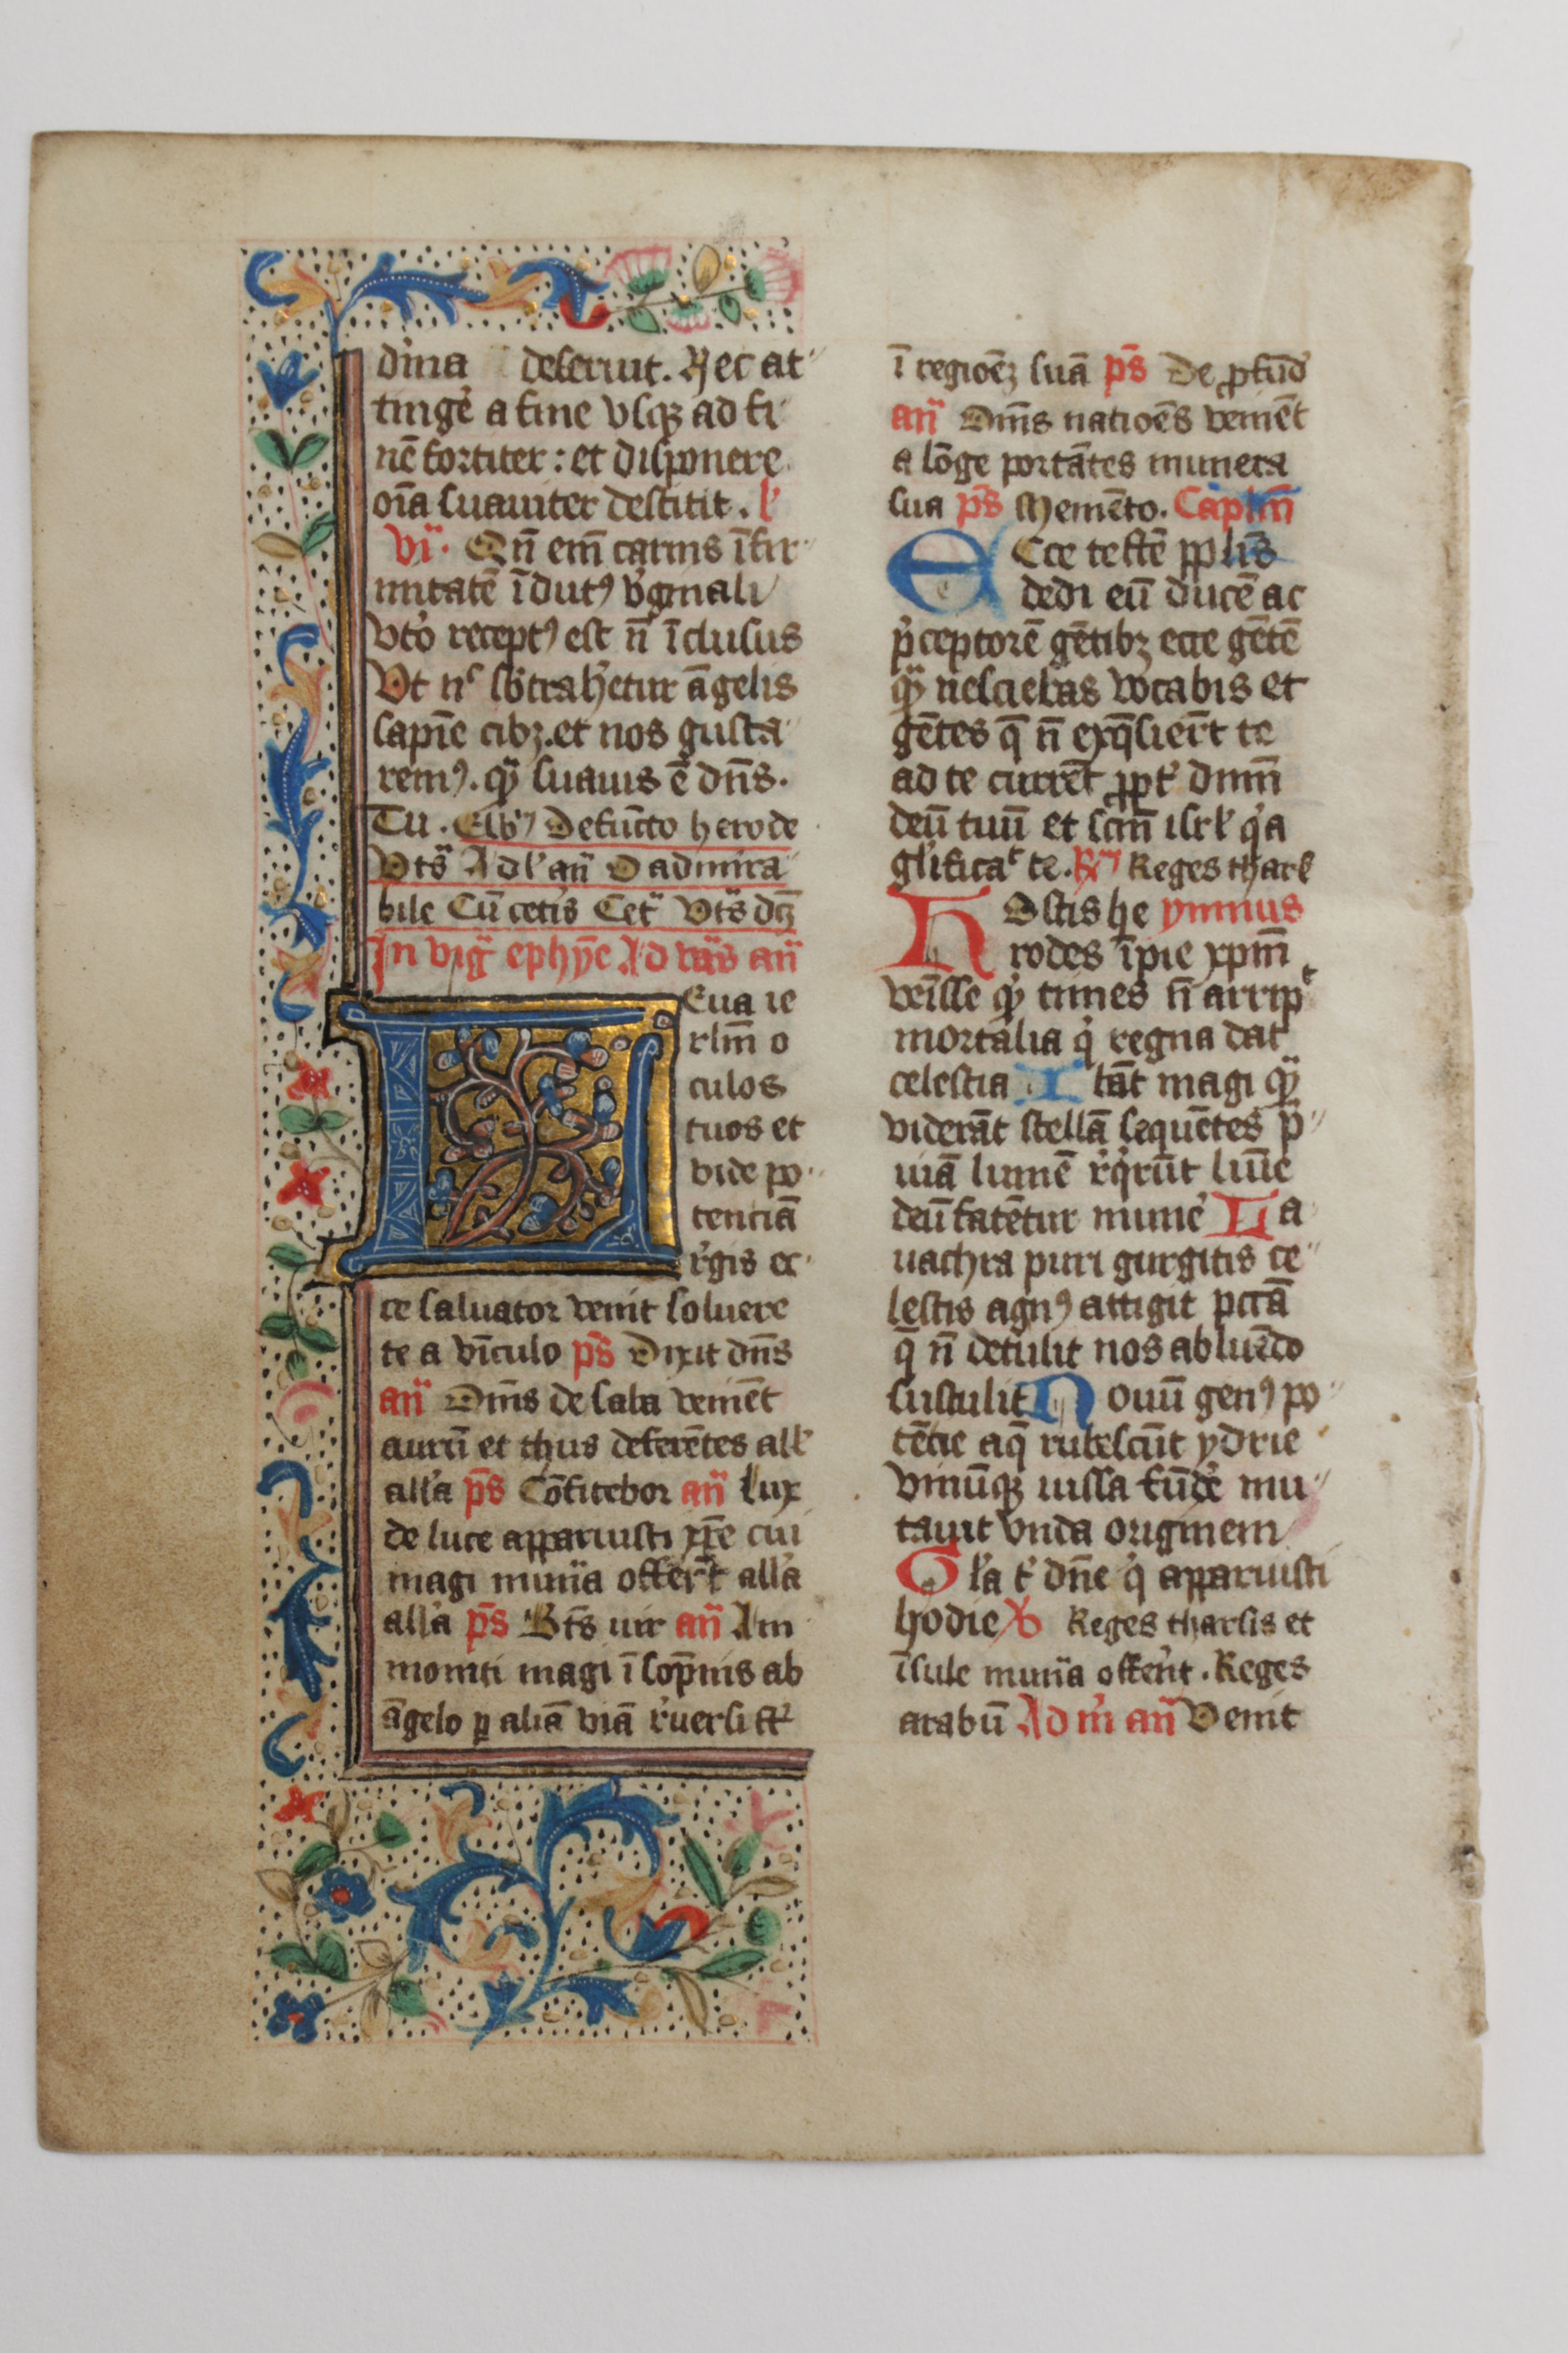 dīna deseruit. Nec at
tingē a fine vsqꝫ ad fi
nē fortiter: et disponere
oīa suauiter destitit. l'
vi. Qn̄ em̄ carnis īfir
mitatē īdutꝰ v̓ginali
vt̓o receptꝰ est n̄ īclusus
Vt n sbtrahetur āgelis
sapīe cibꝫ. et nos gusta
remꝰ. qꝫ suauis ē dn̄s.
Tu. Defūcto herode
Vts̄ Ad l' an̄ O admira
bile Cū cet̓is Cet̄ vts̄
In viḡ ephye Ad vās an̄
Leua ie
rlm̄ o
culos
tuos et
vide po
tentiā
r̓gis ec
ce saluator venit soluere
te a vīculo ps̄ Dixit dn̄s
an̄ Om̄s de saba veniēt
aurū et thus deferētes all'
all'a ps̄ Cōfitebor an̄ Lux
de luce apparuisti xp̄e cui
magi mun̄a offer̄t all'a
all'a ps̄ Bt̄s uir an̄ Am
moniti magi ī sop̄nis ab
āgelo ꝑ aliā viā r̓uersi st̄
ī regioēꝫ suā ps̄ De ꝓfūd
an̄ Om̄s natioēs veniēt
a lōge portātes munera
sua ps̄ Memēto. Capl'm
Ecce testē ppl̄is
dedi eū ducē ac
p̓ceptorē gētibꝫ ecce gētē
qꝫ nesciebas vocabis et
gētes q̄ n̄ exq̄sier̄t te
ad te current ꝓpt̓ dnm̄
deū tuū et scm̄ isrl' q̓a
gl'ificat te. R̄ Reges thars
Hostis he ymnus
rodes īpie xpm̄
veīsse qd̓ times n̄ arrip
mortalia q̓ regna dat
celestia Ibāt magi qꝫ
viderāt stellā sequētes p̄
uiā lumē r̓q̓rūt lumē
deū fatētur mun̓e La
uachra puri gurgitis ce
lestis agnꝰ attigit pctā
q̄ n̄ detulit nos abluēdo
sustulit Nouū genꝰ po
tētie aq̄ rubescūt ydrie
vinūqꝫ iussa fūde̓ mu
tauit vnda originem
Gl'a t̓ dn̄e q̓ apparuisti
hodie ℣ Reges tharsis et
īsule mun̄a offer̄nt. Reges
arabū Ad m̄ an̄ Venit